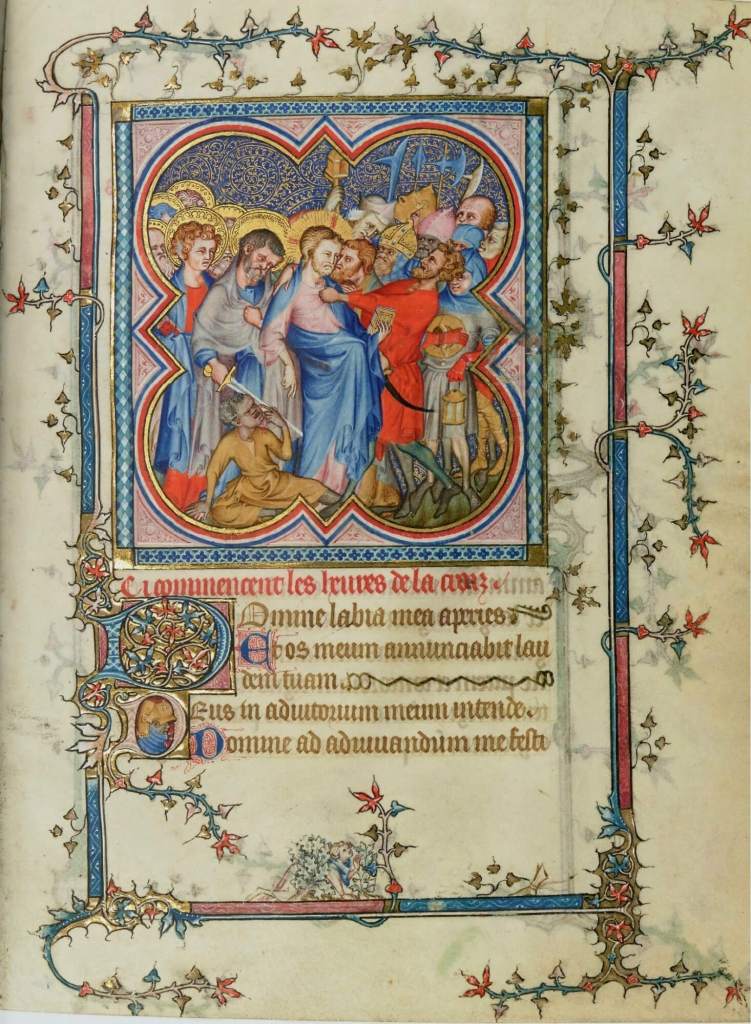 Ci commencent les heures de la croiz.
Domine labia mea aperies
Et os meum annunciabit lau
dem tuam.
Deus in adiutorium meum intende.
Domine ad adiuuandum me festi